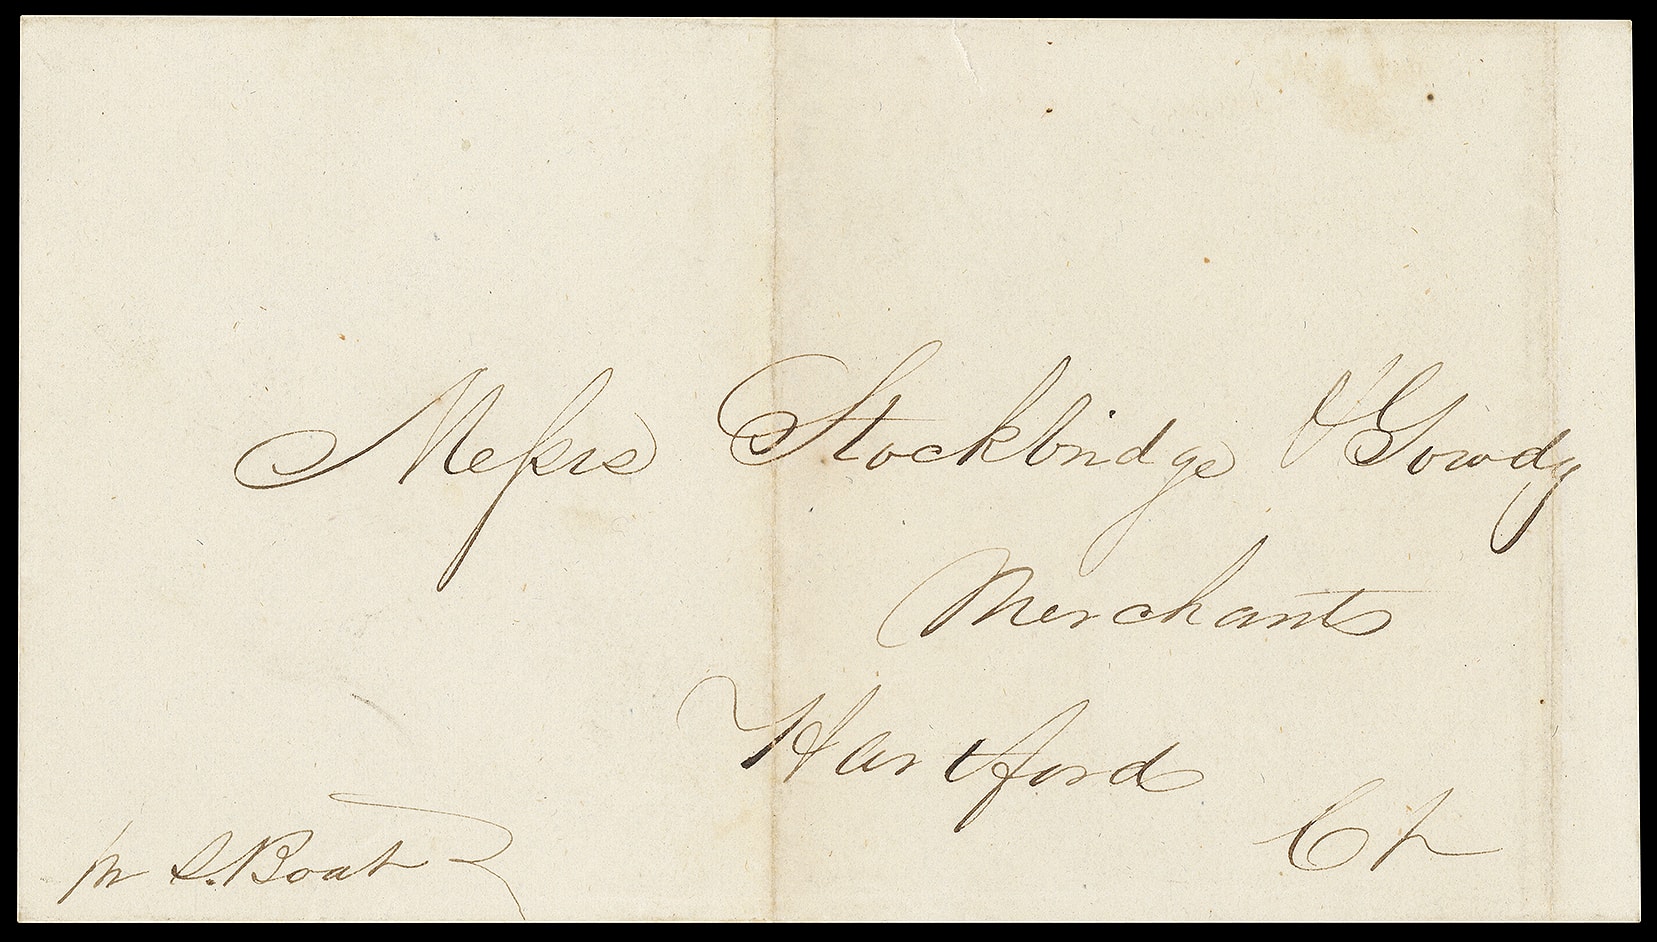 Messrs Stockbridge & Gowdy
Merchants
Hartford
Ct
pr S. Boat